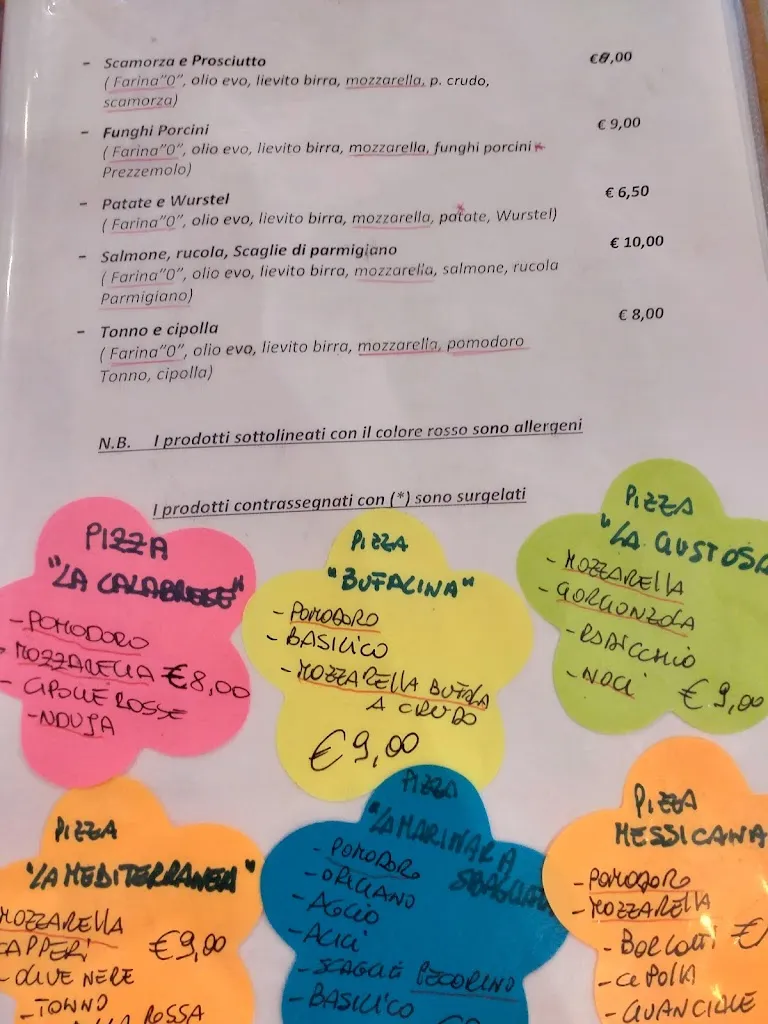 - Scamorza e Prosciutto €8,00
( Farina"0", olio evo, lievito birra, mozzarella, p. crudo,
scamorza)
- Funghi Porcini € 9,00
( Farina"0", olio evo, lievito birra, mozzarella, funghi porcini*
Prezzemolo)
- Patate e Wurstel € 6,50
( Farina"0", olio evo, lievito birra, mozzarella, patate*, Wurstel)
- Salmone, rucola, Scaglie di parmigiano € 10,00
( Farina"0", olio evo, lievito birra, mozzarella, salmone, rucola
Parmigiano)
- Tonno e cipolla € 8,00
( Farina"0", olio evo, lievito birra, mozzarella, pomodoro
Tonno, cipolla)
N.B. I prodotti sottolineati con il colore rosso sono allergeni
I prodotti contrassegnati con (*) sono surgelati
PIZZA
"LA CALABRESE"
- POMODORO
- MOZZARELLA €8,00
- CIPOLLE ROSSE
- NDUJA
PIZZA
"BUFALINA"
- POMODORO
- BASILICO
- MOZZARELLA BUFALA
A CRUDO
€9,00
PIZZA
"LA GUSTOSA
- MOZZARELLA
- GORGONZOLA
- RADICCHIO
- NOCI € 9,00
PIZZA
"LA MEDITERRANEA"
MOZZARELLA
CAPPERI €9,00
- OLIVE NERE
- TONNO
ROSSA
PIZZA
"LA MARINARA
SBAGLIATA
- POMODORO
- ORIGANO
- AGLIO
- ALICI
- SCAGLIE PECORINO
- BASILICO
PIZZA
MESSICANA
- POMODORO
- MOZZARELLA
- BORLOTTI €
- CIPOLLA
- GUANCIALE